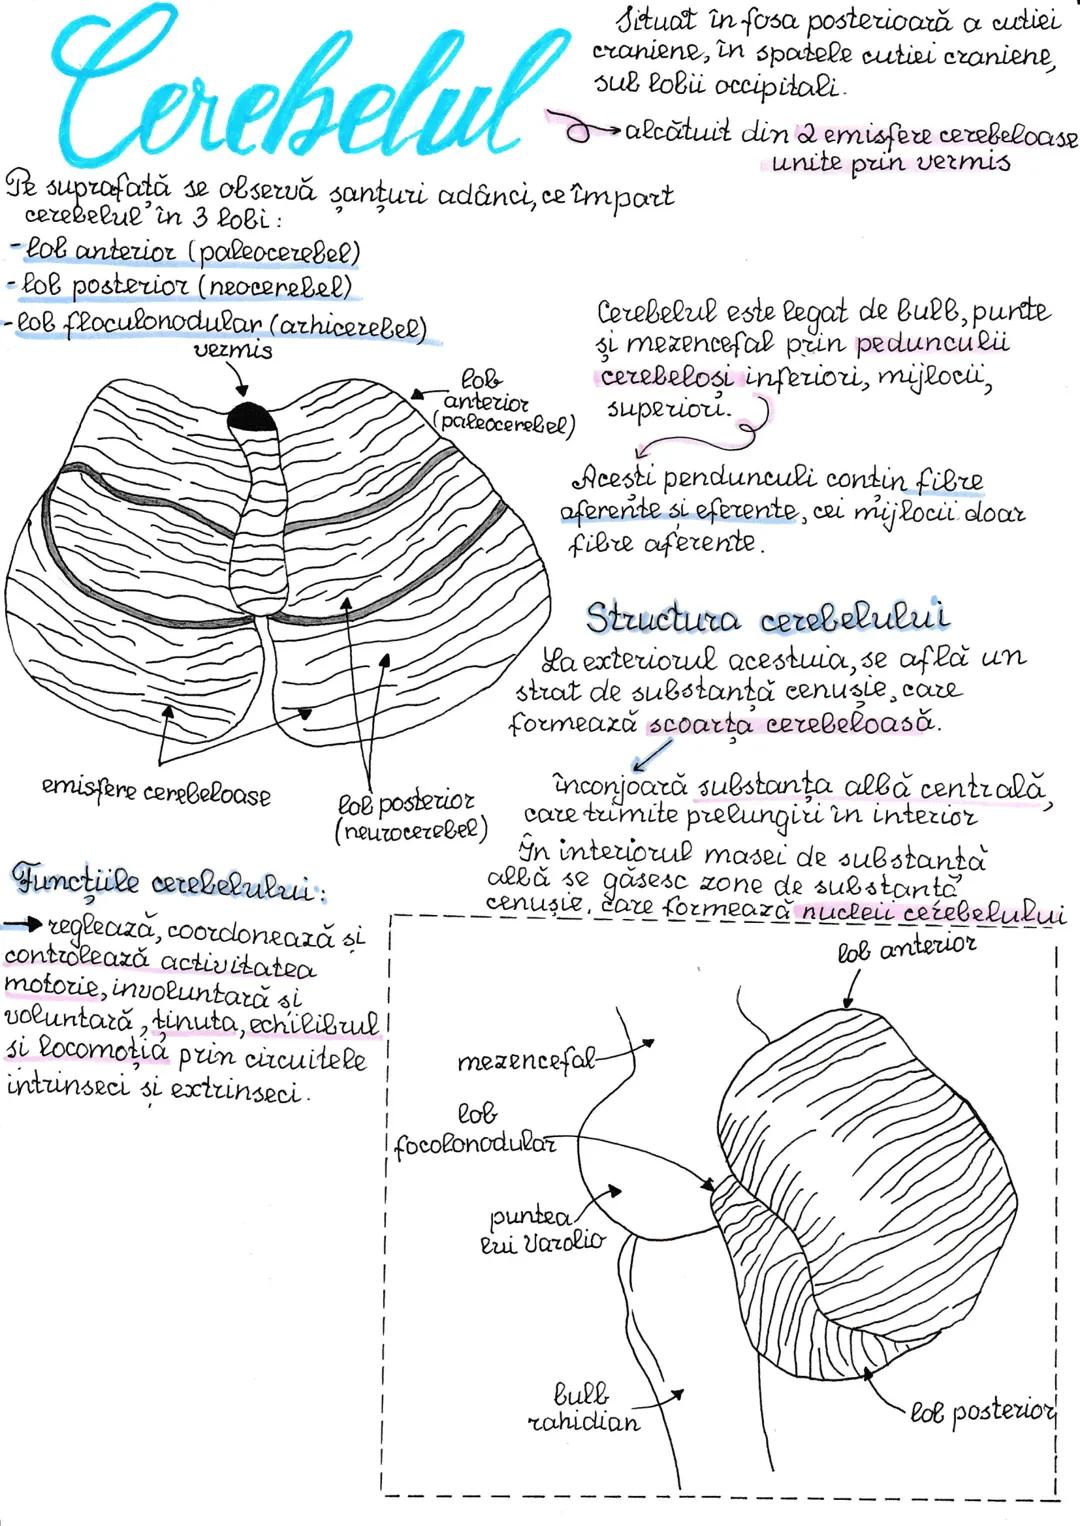 Cerebelul
Situat în fosa posterioară a cutiei
craniene, în spatele cutiei craniene,
sub lobii occipitali.
alcătuit din 2 emisfere cerebeloase
unite prin vermis
Pe suprafață se observă șanțuri adânci, ce împart
cerebelul în 3 lobi:
- lob anterior (paleocerebel)
- lob posterior (neocerebel)
- lob floculonodular (arhicerebel)
vermis
lob
anterior
(paleocerebel)
emisfere cerebeloase
lob posterior
(neurocerebel)
Cerebelul este legat de bulb, punte
și mezencefal prin pedunculii
cerebeloși inferiori, mijlocii,
superiori.
Acești pendunculi conțin fibre
aferente și eferente, cei mijlocii doar
fibre aferente.
Structura cerebelului
La exteriorul acestuia, se află un
strat de substanță cenușie, care
formează scoarța cerebeloasă.
înconjoară substanța albă centrală,
care trimite prelungiri în interior
În interiorul masei de substanță
albă se găsesc zone de substanță
cenușie, care formează nucleii cerebelului
Funcțiile cerebelului:
reglează, coordonează și
controlează activitatea
motorie, involuntară și
voluntară, ținuta, echilibrul
și locomoția prin circuitele
intrinseci și extrinseci.
lob anterior
mezencefal
lob
focolonodular
puntea
lui Varolio
bulb
rahidian
lob posterior